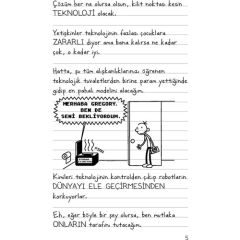 Çözüm her ne olursa olsun, kilit noktası kesin
TEKNOLOJİ olacak.
Yetişkinler teknolojinin fazlası çocuklara
ZARARLI diyor ama bana kalırsa ne kadar
çok, o kadar iyi.
Hatta, şu tüm alışkanlıklarınızı öğrenen
teknolojik tuvaletlerden birine param yettiğinde
gidip en pahalı modelini alacağım.
MERHABA GREGORY.
BEN DE
SENİ BEKLİYORDUM.
Kimileri teknolojinin kontrolden çıkıp robotların
DÜNYAYI ELE GEÇİRMESİNDEN
korkuyorlar.
Eh, eğer böyle bir şey olursa, ben mutlaka
ONLARIN tarafını tutacağım.
5